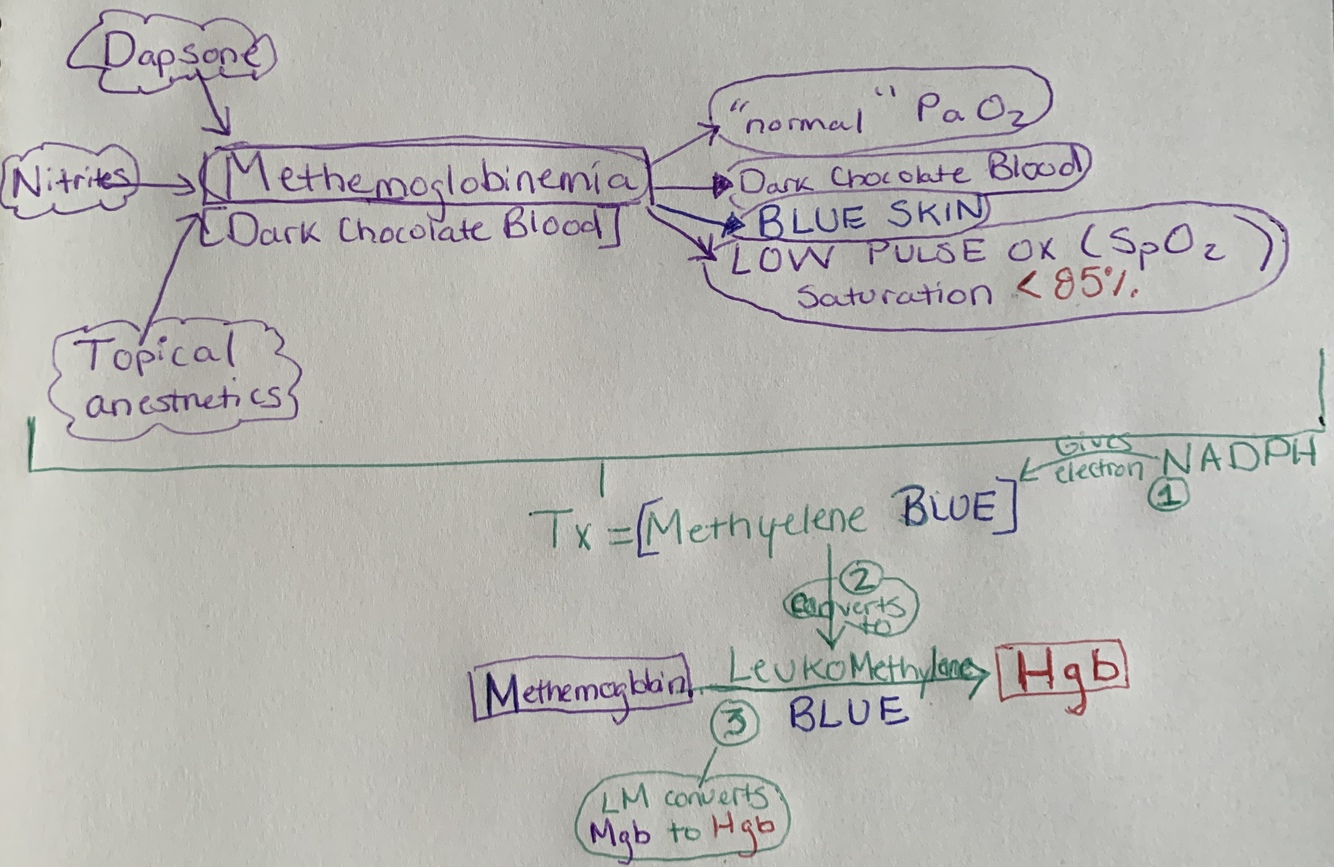 Dapsone
Nitrites
Methemoglobinemia
[Dark Chocolate Blood]
Topical
anesthetics
"normal" PaO2
Dark Chocolate Blood
BLUE SKIN
LOW PULSE OX (SpO2)
Saturation <85%
NADPH
①
Gives
electron
Tx = [Methyelene BLUE]
②
converts
to
Methemoglobin
LeukoMethylene
BLUE
Hgb
③
LM converts
Mgb to Hgb